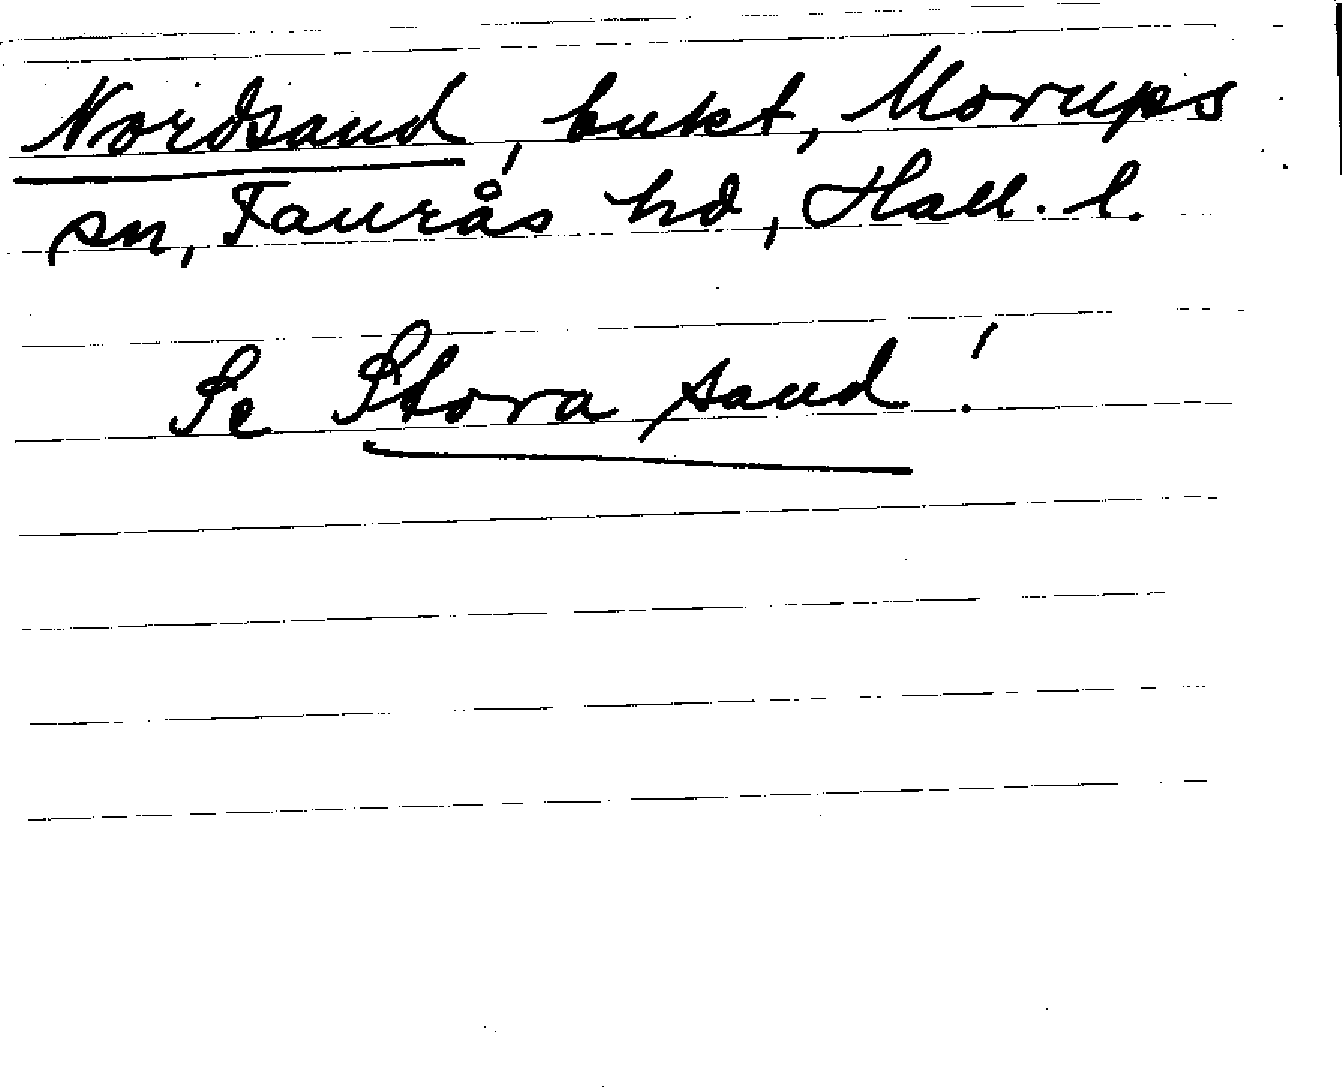 Nordsand, bukt, Morups
sn, Faurås hd, Hall. l.
Se Stora sand!